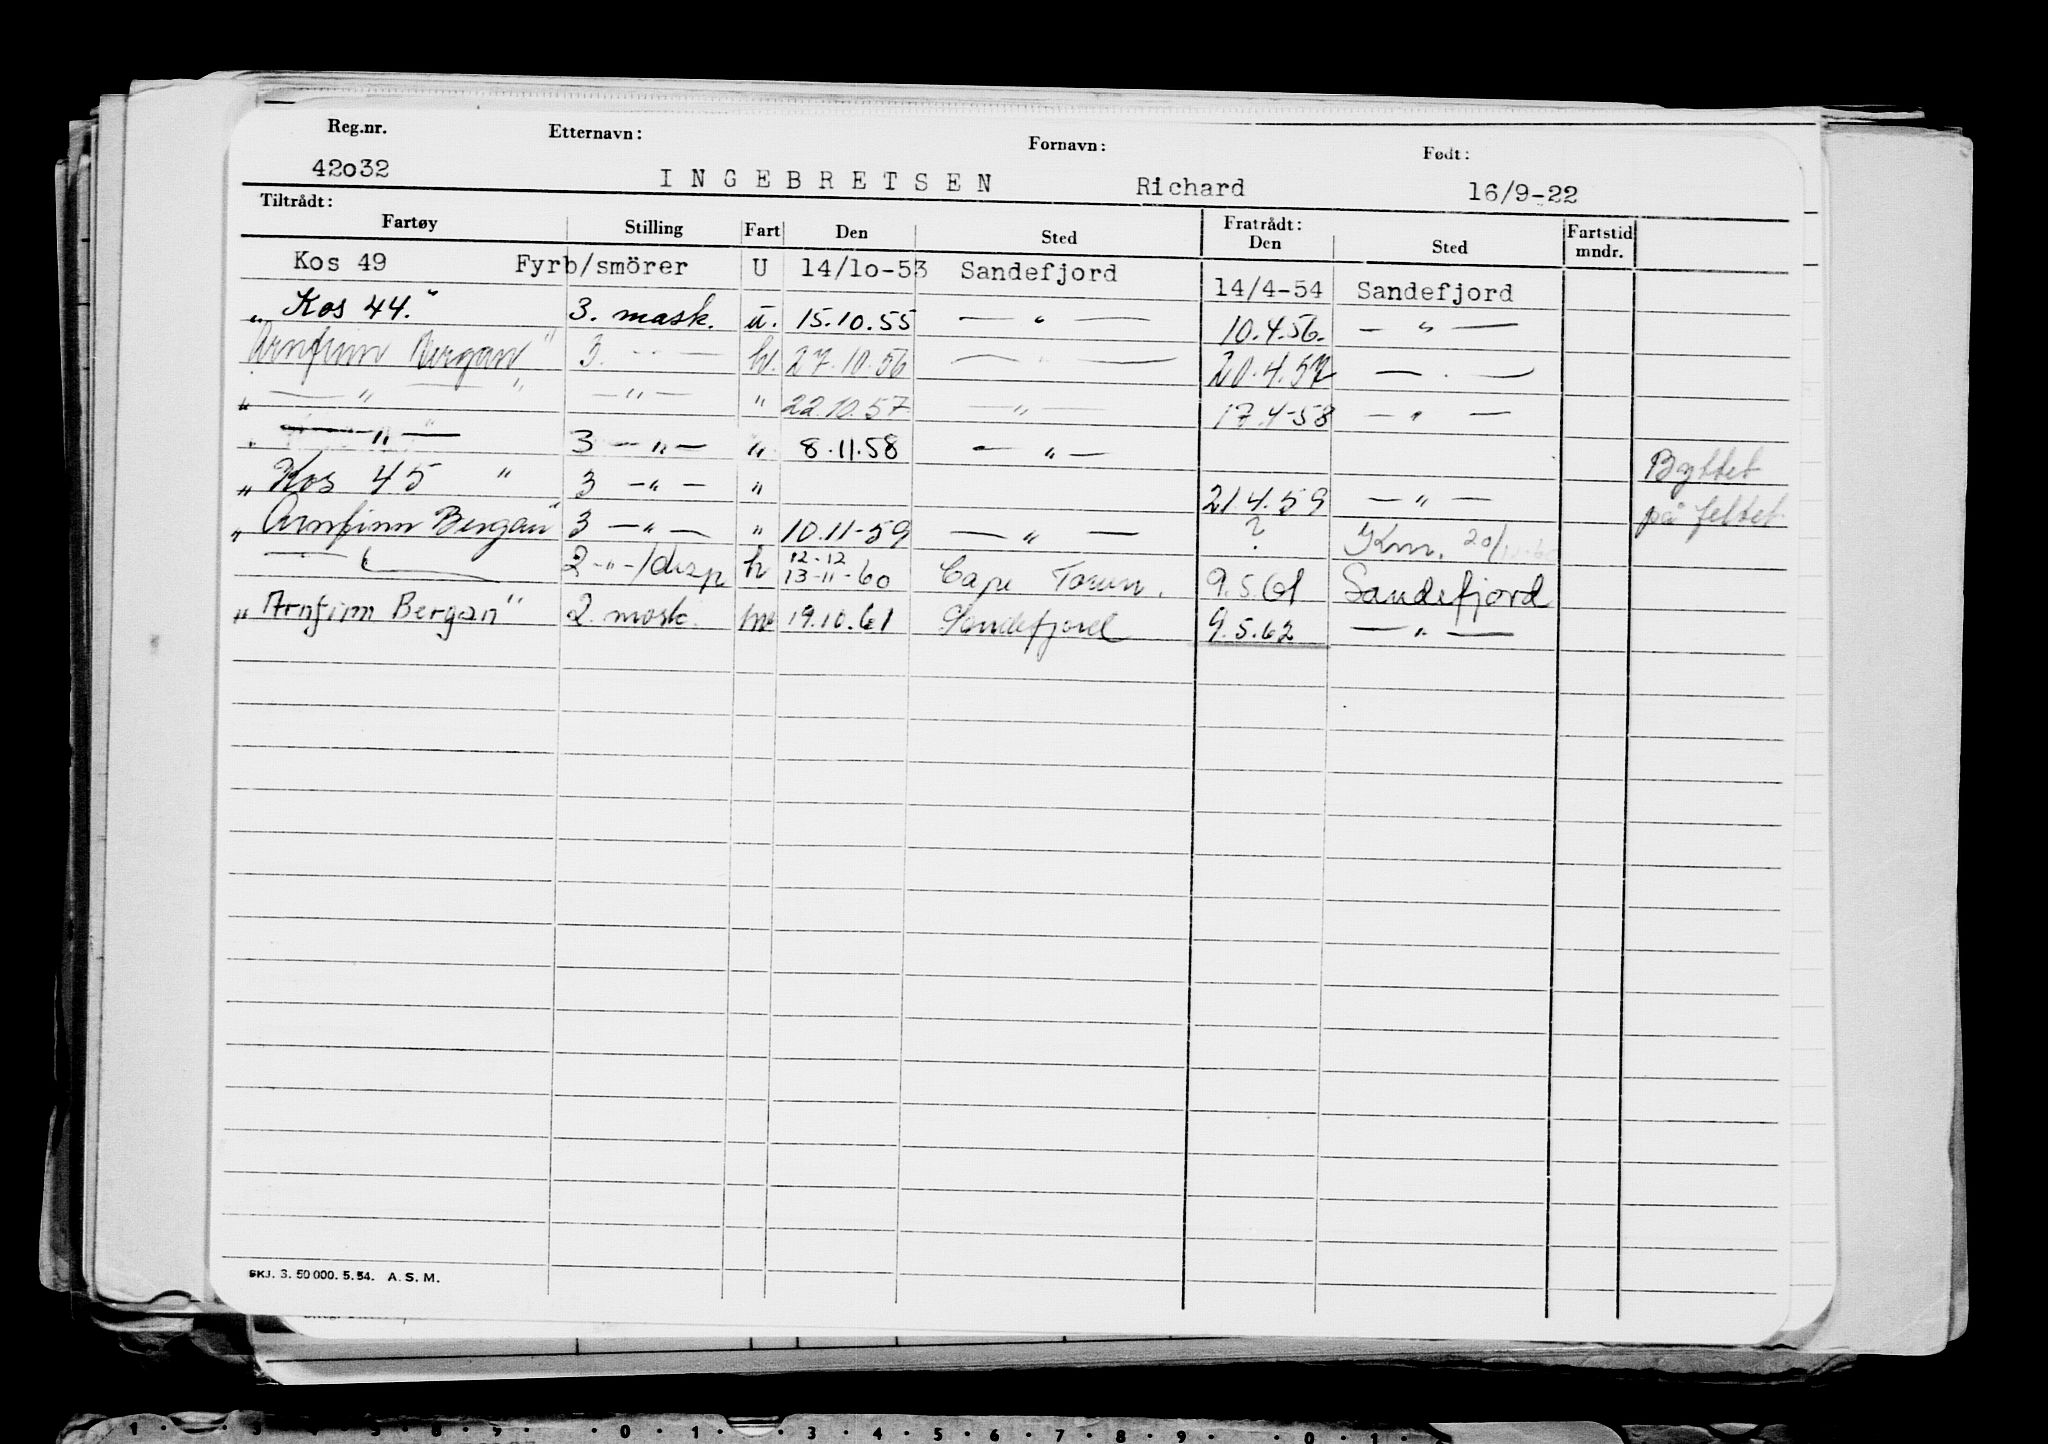 Reg.nr. Etternavn: Fornavn: Født:
42o32 INGEBRETSEN Richard 16/9-22
Tiltrådt: Fratrådt:
Fartøy Stilling Fart Den Sted Den Sted Fartstid mndr.
Kos 49 Fyrb/smörer U 14/1o-53 Sandefjord 14/4-54 Sandefjord
„ Kos 44." 3. mask. u. 15.10.55 — " — 10.4.56. — " —
Arnfinn Bergan" 3. — " — hv. 27.10.56 — " — 20.4.57 — " —
„ — " — " — " — " 22.10.57 — " — 17.4-58 — " —
„ — " — " 3 — " — " 8.11.58 — " — Byttet
„ Kos 45 " 3 — " — " 21.4.59 — " — på feltet
„ Arnfinn Bergan" 3 — " — " 10.11-59 — " — ? Knr. 20/
— " — 2 — " — /disp h 12-12 13-11-60 Cape Town. 9.5.61 Sandefjord
„ Arnfinn Bergan" 2. mask. 19.10.61 Sandefjord 9.5.62 — " —
SKJ. 3. 50 000. 5. 54. A. S. M.